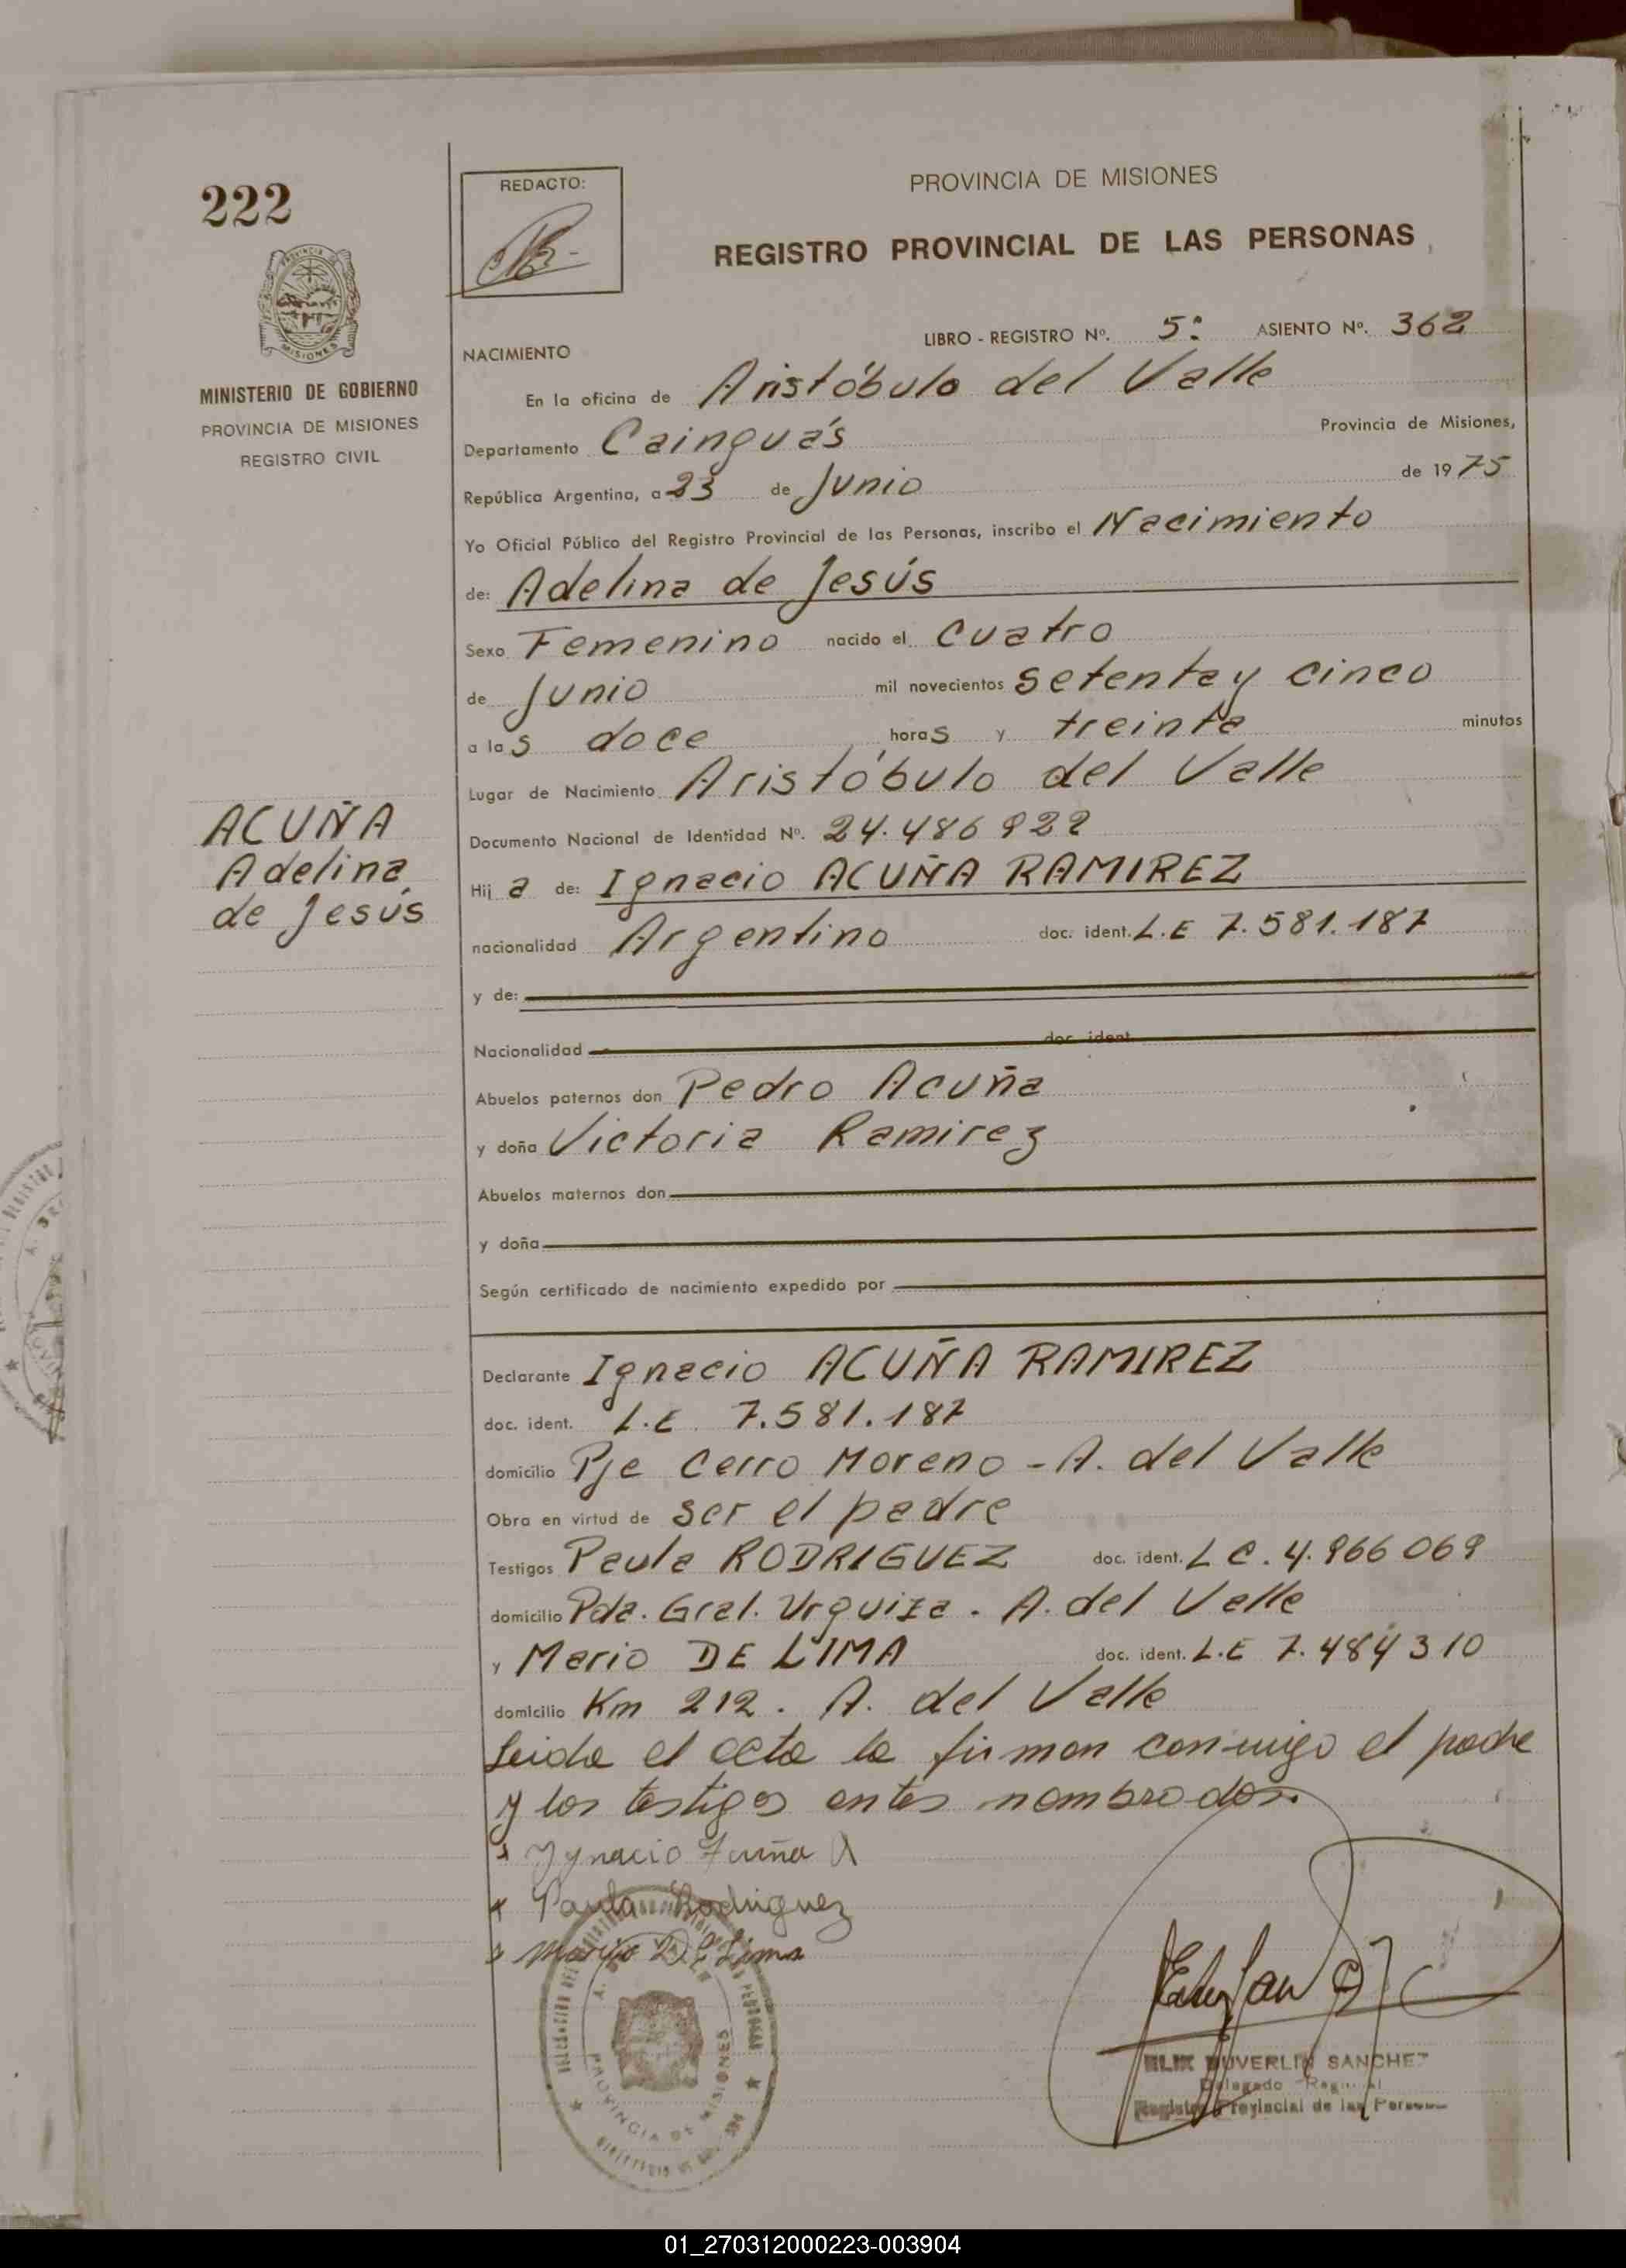 222
REDACTO:
PROVINCIA DE MISIONES
REGISTRO PROVINCIAL DE LAS PERSONAS
MINISTERIO DE GOBIERNO
PROVINCIA DE MISIONES
REGISTRO CIVIL
LIBRO - REGISTRO Nº. 5º ASIENTO Nº. 362
NACIMIENTO
En la oficina de Aristóbulo del Valle
Departamento Cainguás Provincia de Misiones,
República Argentina, a 23 de Junio de 1975
Yo Oficial Público del Registro Provincial de las Personas, inscribo el Nacimiento
de: Adelina de Jesús
Sexo Femenino nacido el cuatro
de Junio mil novecientos setenta y cinco
a las doce horas y treinta minutos
Lugar de Nacimiento Aristóbulo del Valle
Documento Nacional de Identidad Nº. 24.486922
ACUÑA
Adelina
de Jesús
Hija de: Ignacio ACUÑA RAMIREZ
nacionalidad Argentino doc. ident. L.E 7.581.187
y de:
Nacionalidad doc. ident.
Abuelos paternos don Pedro Acuña
y doña Victoria Ramirez
Abuelos maternos don
y doña
Según certificado de nacimiento expedido por
Declarante Ignacio ACUÑA RAMIREZ
doc. ident. L.E 7.581.187
domicilio Pje Cerro Moreno - A. del Valle
Obra en virtud de ser el padre
Testigos Paula RODRIGUEZ doc. ident. L C. 4.966069
domicilio Pda. Gral. Urquiza. A. del Valle
y Mario DE LIMA doc. ident. L.E 7.484310
domicilio Km 212. A. del Valle
Leida el acta la firman conmigo el padre
y los testigos antes nombrados.
Ygnacio Acuña R
Paula Rodriguez
Mario DE Lima
PROVINCIA DE MISIONES
DUVERLIN SANCHEZ
Delegado Regional
Registro Provincial de las Personas
01_270312000223-003904